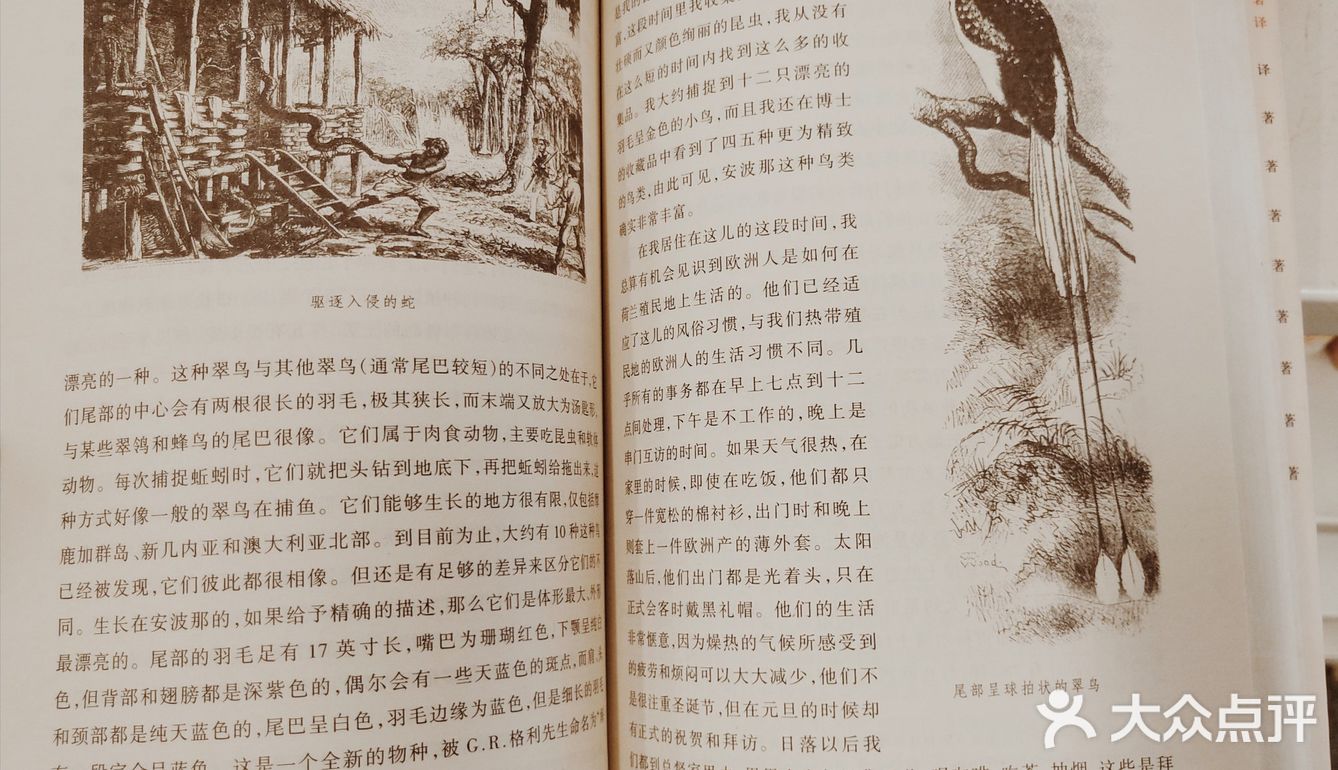 驱逐入侵的蛇
漂亮的一种。这种翠鸟与其他翠鸟(通常尾巴较短)的不同之处在于,它
们尾部的中心会有两根很长的羽毛,极其狭长,而末端又放大为汤匙形,
与某些翠鸰和蜂鸟的尾巴很像。它们属于肉食动物,主要吃昆虫和软体
动物。每次捕捉蚯蚓时,它们就把头钻到地底下,再把蚯蚓给拖出来,这
种方式好像一般的翠鸟在捕鱼。它们能够生长的地方很有限,仅包括摩
鹿加群岛、新几内亚和澳大利亚北部。到目前为止,大约有10种这种鸟
已经被发现,它们彼此都很相像。但还是有足够的差异来区分它们的不
同。生长在安波那的,如果给予精确的描述,那么它们是体形最大、外形
最漂亮的。尾部的羽毛足有17英寸长,嘴巴为珊瑚红色,下颚呈纯白
色,但背部和翅膀都是深紫色的,偶尔会有一些天蓝色的斑点,而肩、头
和颈部都是纯天蓝色的,尾巴呈白色,羽毛边缘为蓝色,但是细长的羽毛
这是一个全新的物种,被G.R.格利先生命名为"
这段时间里我收
壮硕而又颜色绚丽的昆虫,我从没有
在这么短的时间内找到这么多的收
集品。我大约捕捉到十二只漂亮的
羽毛呈金色的小鸟,而且我还在博士
的收藏品中看到了四五种更为精致
的鸟类,由此可见,安波那这种鸟类
确实非常丰富。
在我居住在这儿的这段时间,我
总算有机会见识到欧洲人是如何在
荷兰殖民地上生活的。他们已经适
应了这儿的风俗习惯,与我们热带殖
民地的欧洲人的生活习惯不同。几
乎所有的事务都在早上七点到十二
点间处理,下午是不工作的,晚上是
串门互访的时间。如果天气很热,在
家里的时候,即使在吃饭,他们都只
穿一件宽松的棉衬衫,出门时和晚上
则套上一件欧洲产的薄外套。太阳
落山后,他们出门都是光着头,只在
正式会客时戴黑礼帽。他们的生活
非常惬意,因为燥热的气候所感受到
的疲劳和烦闷可以大大减少,他们不
是很注重圣诞节,但在元旦的时候却
有正式的祝贺和拜访。日落以后我
们都到总督家里
抽烟,这些是拜
尾部呈球拍状的翠鸟
译
著
著
著
著
著
著
著
著
大众点评